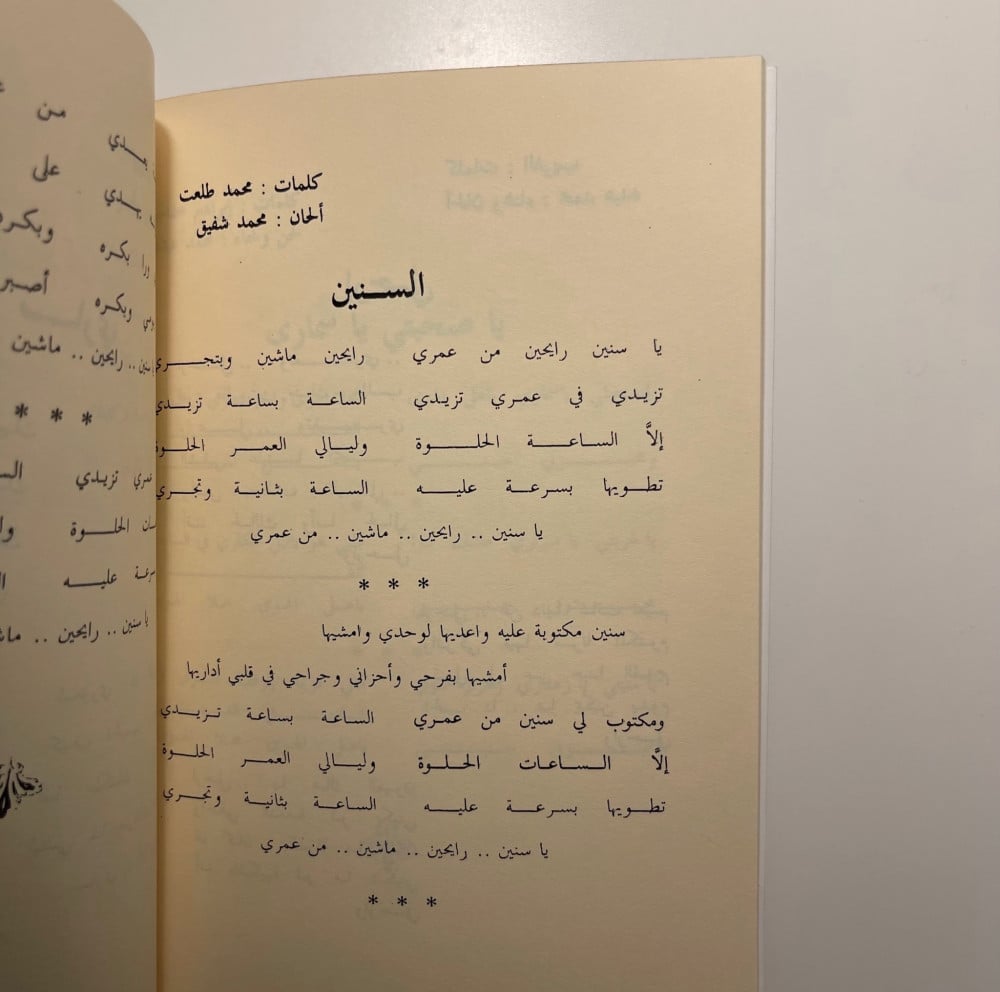 كلمات : محمد طلعت
ألحان : محمد شفيق
الســنين
يا سنين رايحين من عمري رايحين ماشين وبتجــري
تزيــدي في عمري تزيدي الساعة بساعة تزيــدي
إلاَّ الساعــة الحلــوة وليالي العمر الحلوة
تطويها بسرعة عليــه الساعة بثانية وتجري
يا سنين .. رايحين .. ماشين .. من عمري
* * *
سنين مكتوبة عليه واعديها لوحدي وامشيها
أمشيها بفرحي وأحزاني وجراحي في قلبي أداريها
ومكتوب لي سنين من عمري الساعة بساعة تزيــدي
إلاَّ الساعات الحلوة وليالي العمر الحلوة
تطويها بسرعة عليــه الساعة بثانية وتجري
يا سنين .. رايحين .. ماشين .. من عمري
* * *
من
على
وبكره
ورا بكره
وبكره أصبر
سنين .. رايحين .. ماشين
* * *
عمري تزيدي
الحلــوة
عليــه
يا سنين .. رايحين ..